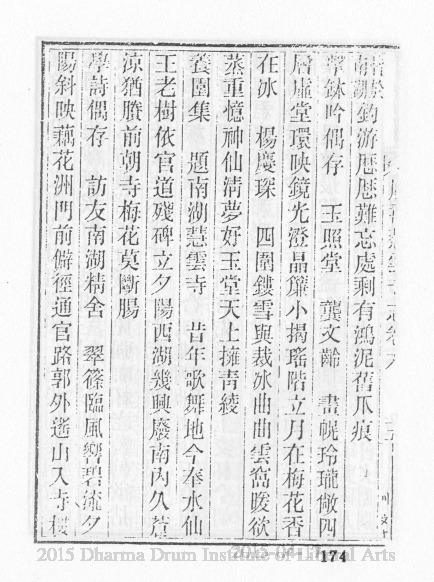 釣游歷歷難忘處剩有鴻泥舊爪痕
擊鉢吟偶存　玉照堂　龔文齡　畫幌玲瓏敞四
層虛堂環映鏡光澄晶簾小揭瑤階立月在梅花香
在冰　楊慶琛　四圍鏤雪與裁冰曲曲雲窩暖欲
蒸重憶神仙清夢好玉堂天上擁青綾
圍集　題南湖慧雲寺　昔年歌舞地今奉水仙
王老樹依官道殘碑立夕陽西湖幾興廢南內久荒
涼猶賸前朝寺梅花莫斷腸
學詩偶存　訪友南湖精舍　翠篠臨風響碧流夕
陽斜映藕花洲門前僻徑通官路郭外遙山入寺樓
174
2015 Dharma Drum Institute of Liberal Arts